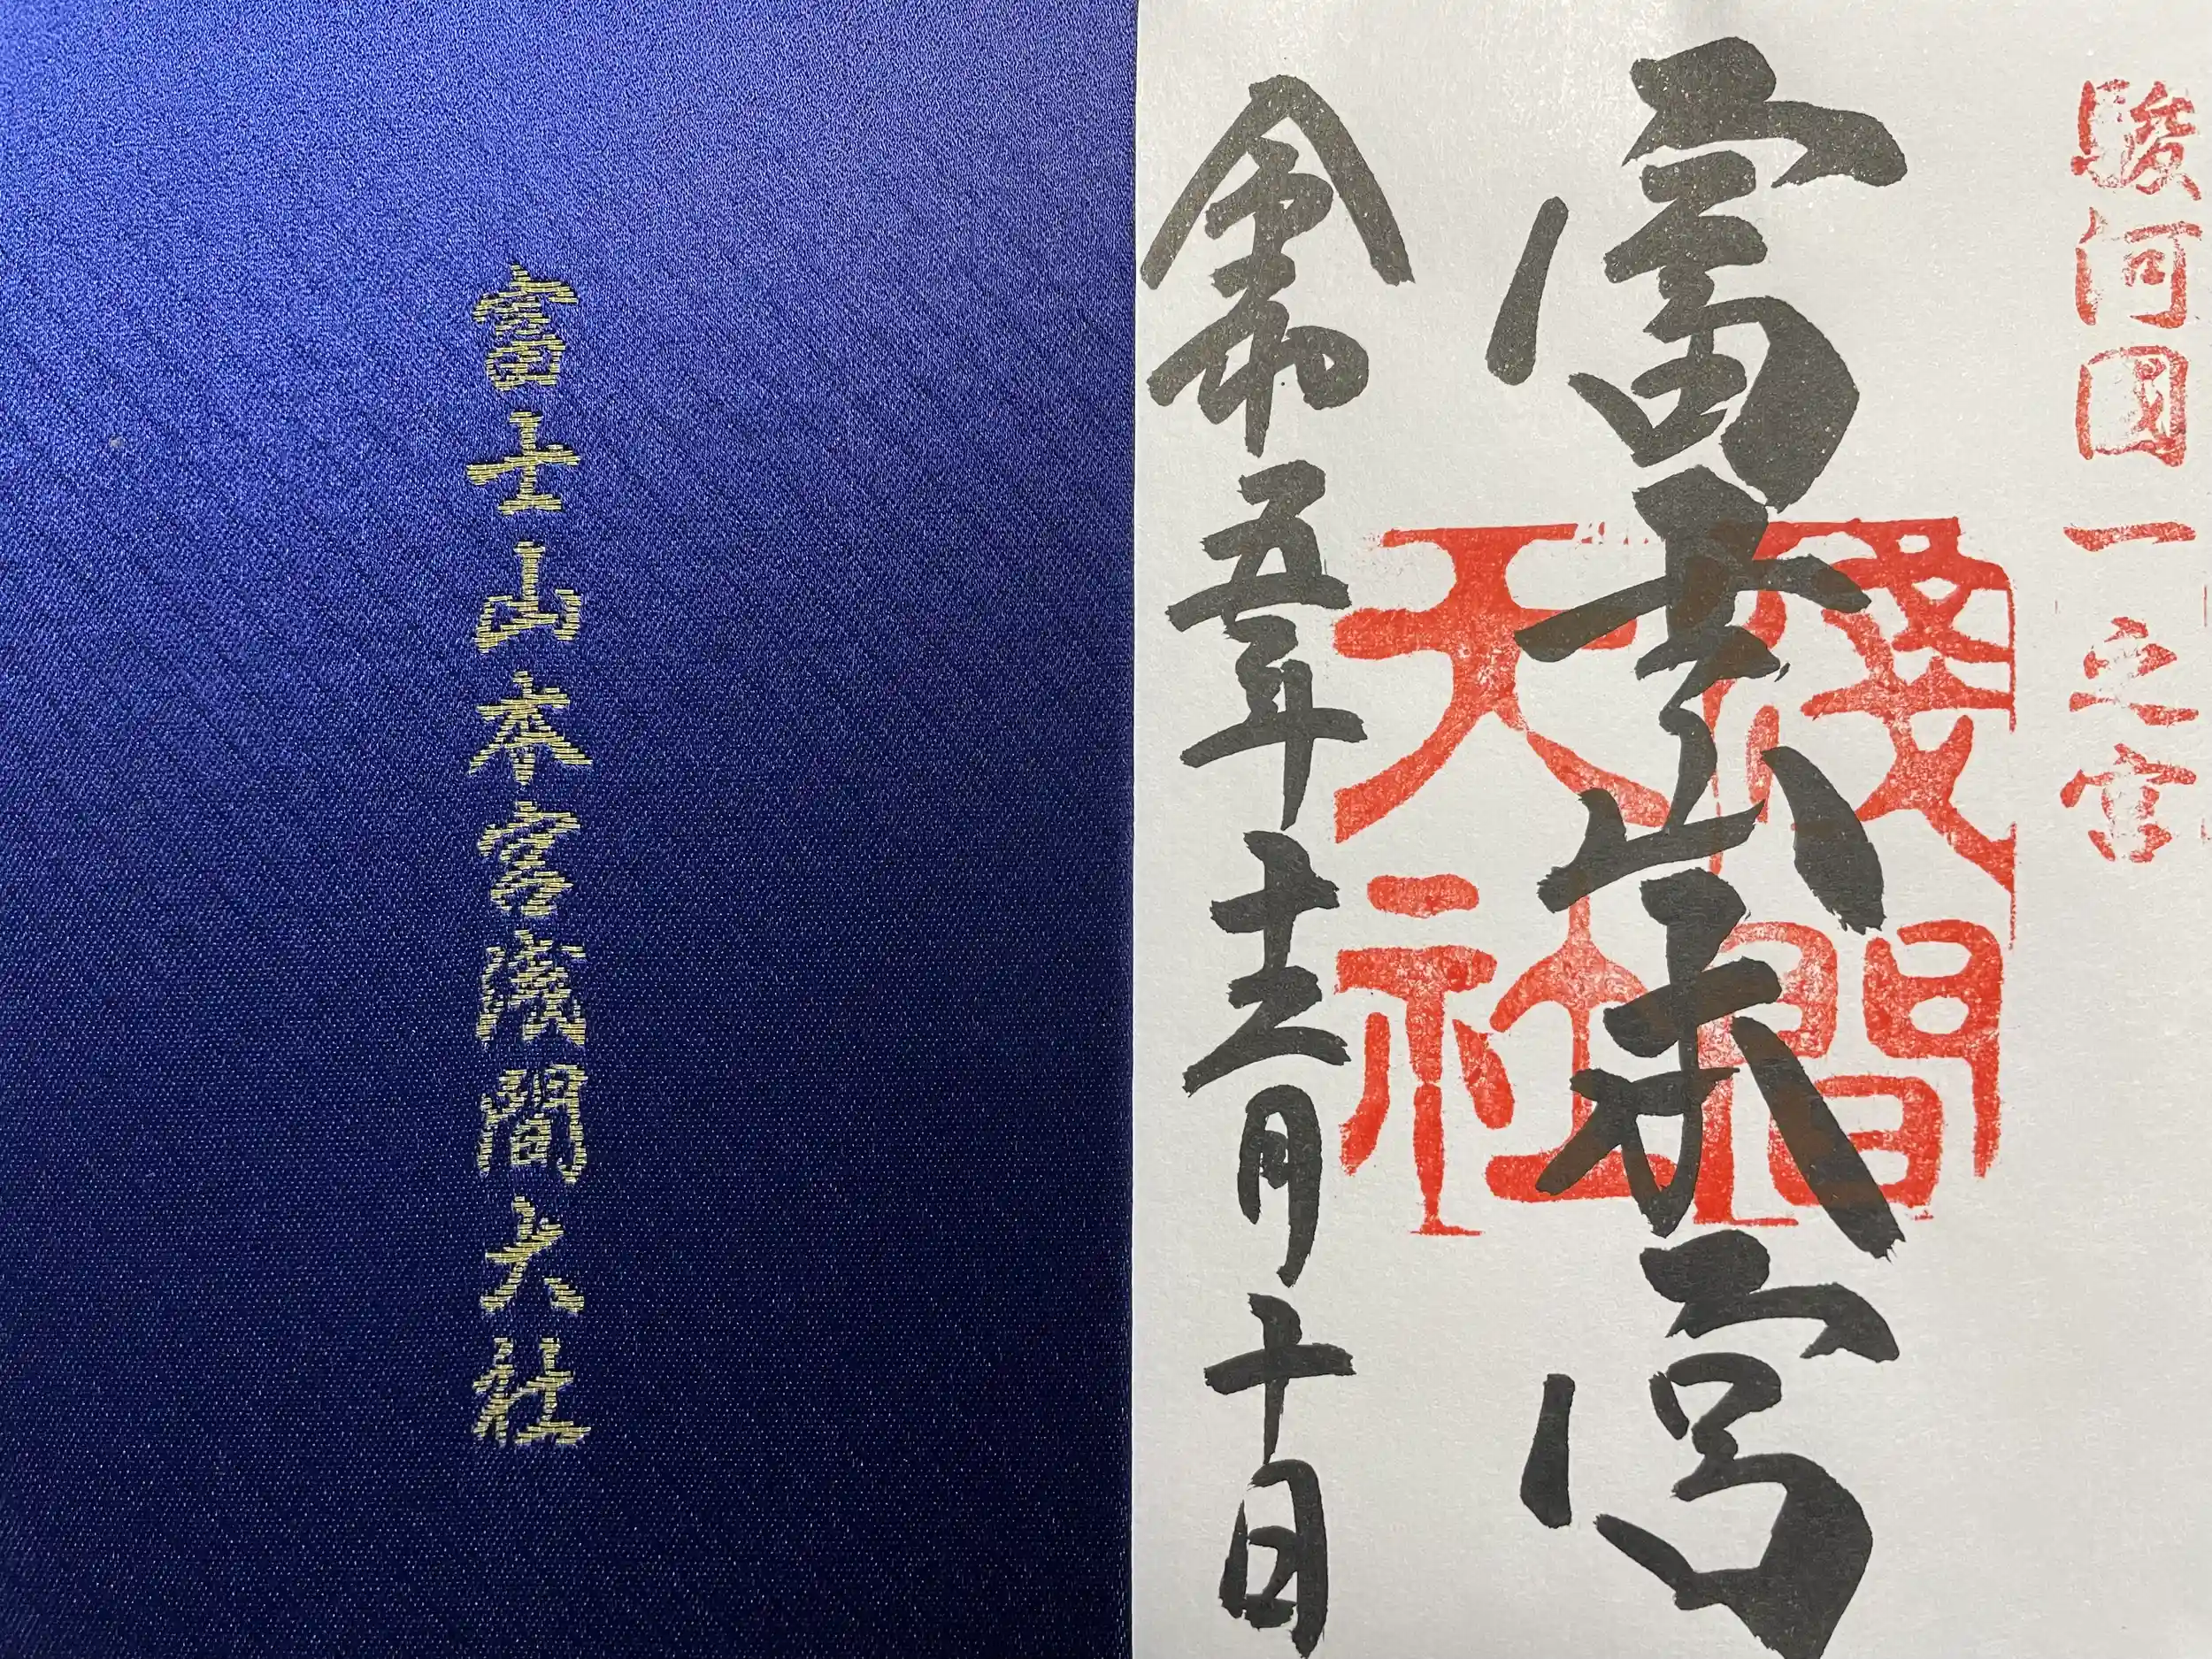 富士山本宮浅間大社
駿河國一之宮
富士山本宮
淺間
大社
令和五年十二月十日